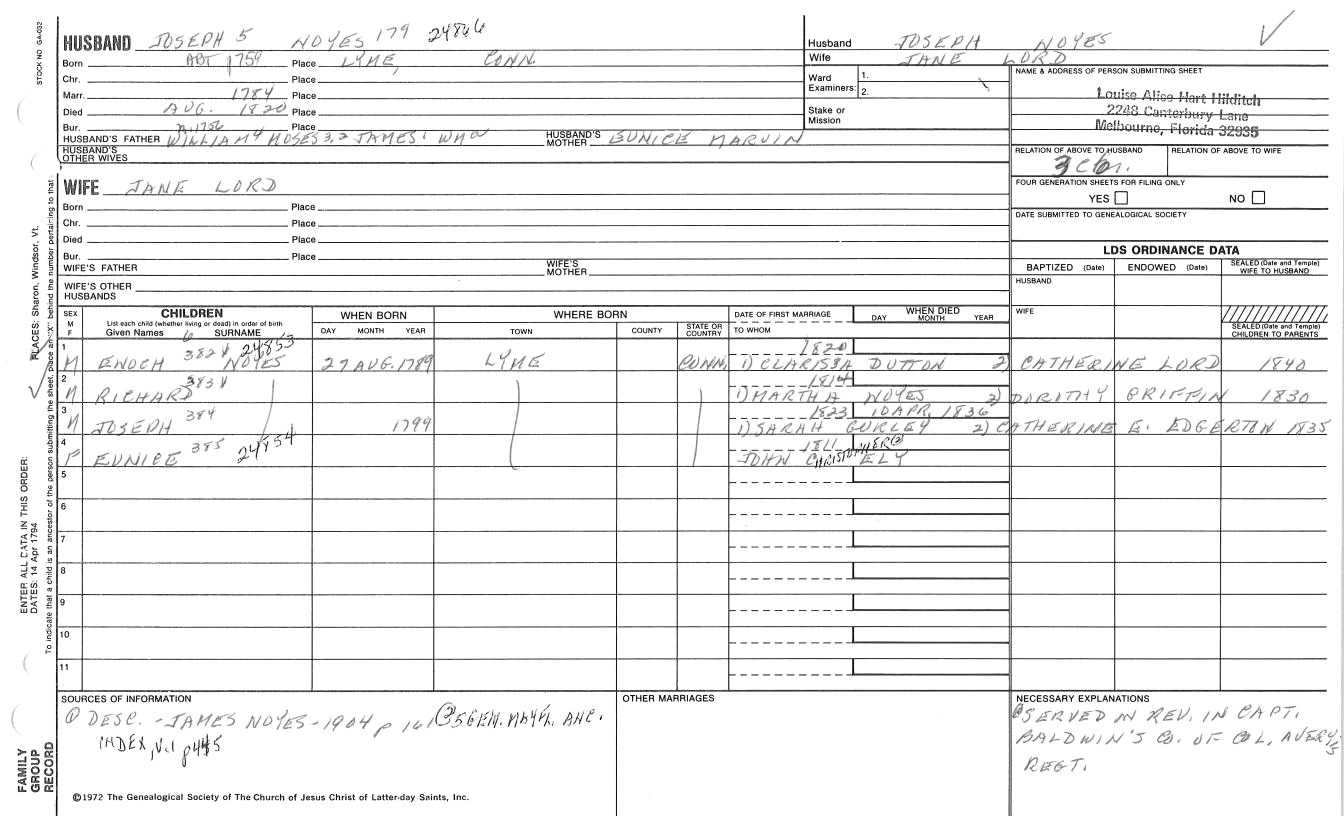 STOCK NO GA-032
HUSBAND JOSEPH 5 NOYES 179 24846
Born ABT 1759 Place LYME, CONN.
Chr. Place
Marr. 1784 Place
Died AUG. 1820 Place
Bur. Place
m. 1756
HUSBAND'S FATHER WILLIAM 4 MOSES 3, 2 JAMES 1 WM
HUSBAND'S MOTHER EUNICE MARVIN
HUSBAND'S OTHER WIVES
Husband JOSEPH NOYES
Wife JANE LORD
Ward Examiners: 1.
2.
Stake or Mission
NAME & ADDRESS OF PERSON SUBMITTING SHEET
Louise Alice Hart Hilditch
2248 Canterbury Lane
Melbourne, Florida 32935
RELATION OF ABOVE TO HUSBAND RELATION OF ABOVE TO WIFE
FOUR GENERATION SHEETS FOR FILING ONLY
YES NO
DATE SUBMITTED TO GENEALOGICAL SOCIETY
WIFE JANE LORD
Born Place
Chr. Place
Died Place
Bur. Place
WIFE'S FATHER WIFE'S MOTHER
WIFE'S OTHER HUSBANDS
LDS ORDINANCE DATA
BAPTIZED (Date) ENDOWED (Date) SEALED (Date and Temple) WIFE TO HUSBAND
HUSBAND
WIFE
SEALED (Date and Temple) CHILDREN TO PARENTS
SEX M F
CHILDREN
List each child (whether living or dead) in order of birth
Given Names 6 SURNAME
WHEN BORN
DAY MONTH YEAR
WHERE BORN
TOWN COUNTY STATE OR COUNTRY
DATE OF FIRST MARRIAGE
TO WHOM
WHEN DIED
DAY MONTH YEAR
1 M ENOCH 382 V NOYES 24853 27 AUG. 1789 LYME CONN. 1820
1) CLARISSA DUTTON 2) CATHERINE LORD 1840
2 M RICHARD 383 V 1814
1) MARTHA NOYES 2) DOROTHY GRIFFIN 1830
3 M JOSEPH 384 1799 1823 10 APR, 1836
1) SARAH GURLEY 2) CATHERINE E. EDGERTON 1835
4 F EUNICE 385 24854 1811
JOHN CHRISTOPHER ELY
5
6
7
8
9
10
11
SOURCES OF INFORMATION
① DESC. - JAMES NOYES - 1904 p 161
INDEX, V.1 p445
OTHER MARRIAGES
NECESSARY EXPLANATIONS
SERVED IN REV. IN CAPT.
BALDWIN'S CO. OF COL. AVERY'S
REGT.
©1972 The Genealogical Society of The Church of Jesus Christ of Latter-day Saints, Inc.
FAMILY GROUP RECORD
ENTER ALL DATA IN THIS ORDER:
DATES: 14 Apr 1794
PLACES: Sharon, Windsor, Vt.
To indicate that a child is an ancestor of the person submitting the sheet, place an "X" behind the number pertaining to that